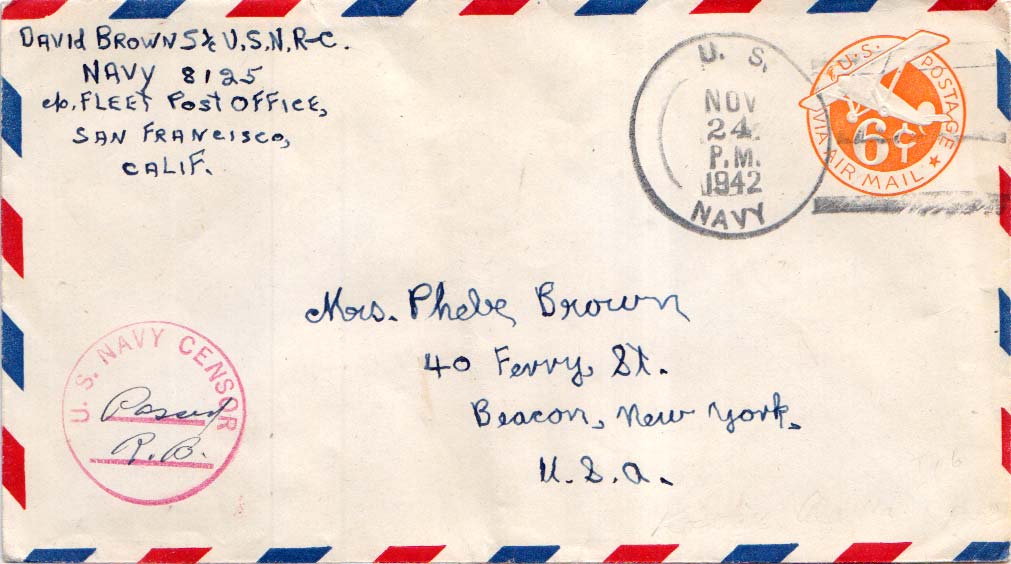 DAVID BROWN S2/c U.S.N.R-C.
NAVY 8125
c/o. FLEET POST OFFICE,
SAN FRANCISCO,
CALIF.
U. S.
NOV
24
P.M.
1942
NAVY
U.S. POSTAGE
6¢
VIA AIR MAIL
Mrs. Phebe Brown
40 Ferry St.
Beacon, New York.
U.S.A.
U. S. NAVY CENSOR
Passed
R.B.